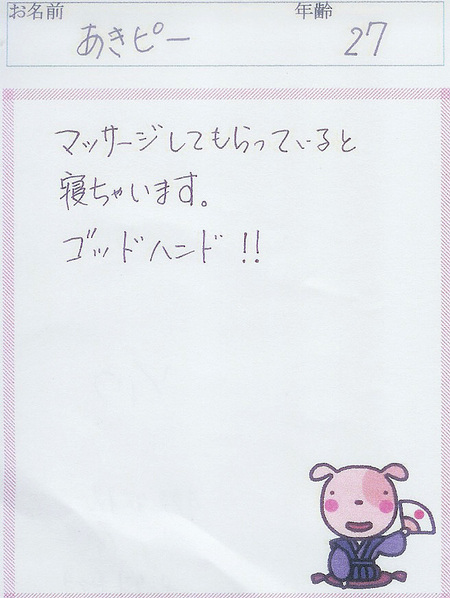 お名前 年齢
あきピー 27
マッサージしてもらっていると
寝ちゃいます。
ゴッドハンド!!